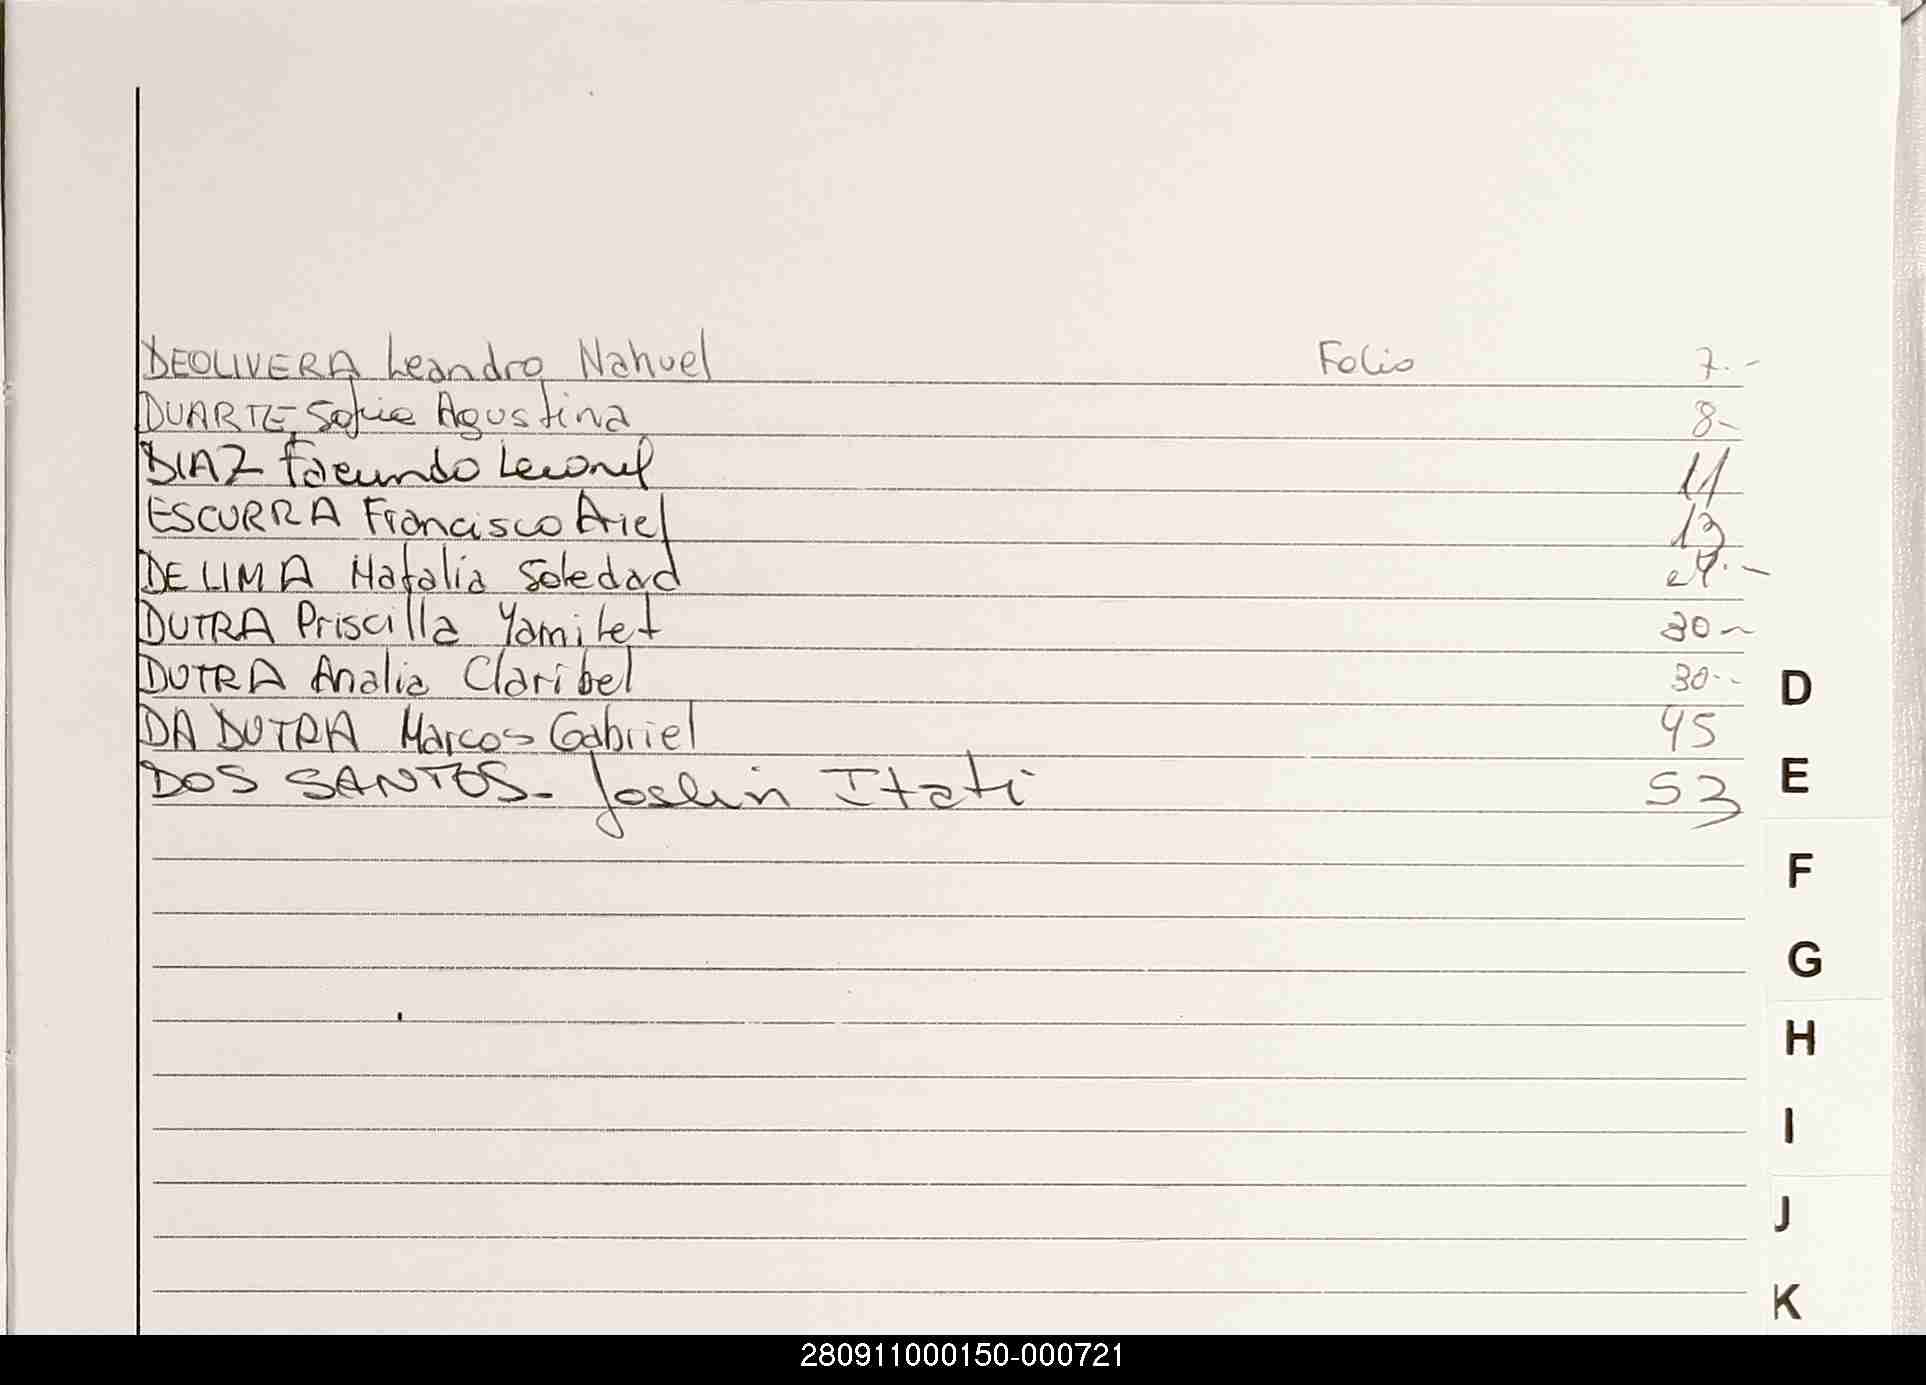 DEOLIVERA Leandro Nahuel Folio 7.-
DUARTE Sofia Agustina 8-
DIAZ Facundo Leonel 11
ESCURRA Francisco Ariel 13
DE LIMA Natalia Soledad
DUTRA Priscilla Yamilet 30-
DUTRA Analia Claribel 30--
DA DUTRA Marcos Gabriel 45
DOS SANTOS- Joslin Itati 53
D
E
F
G
H
I
J
K
280911000150-000721